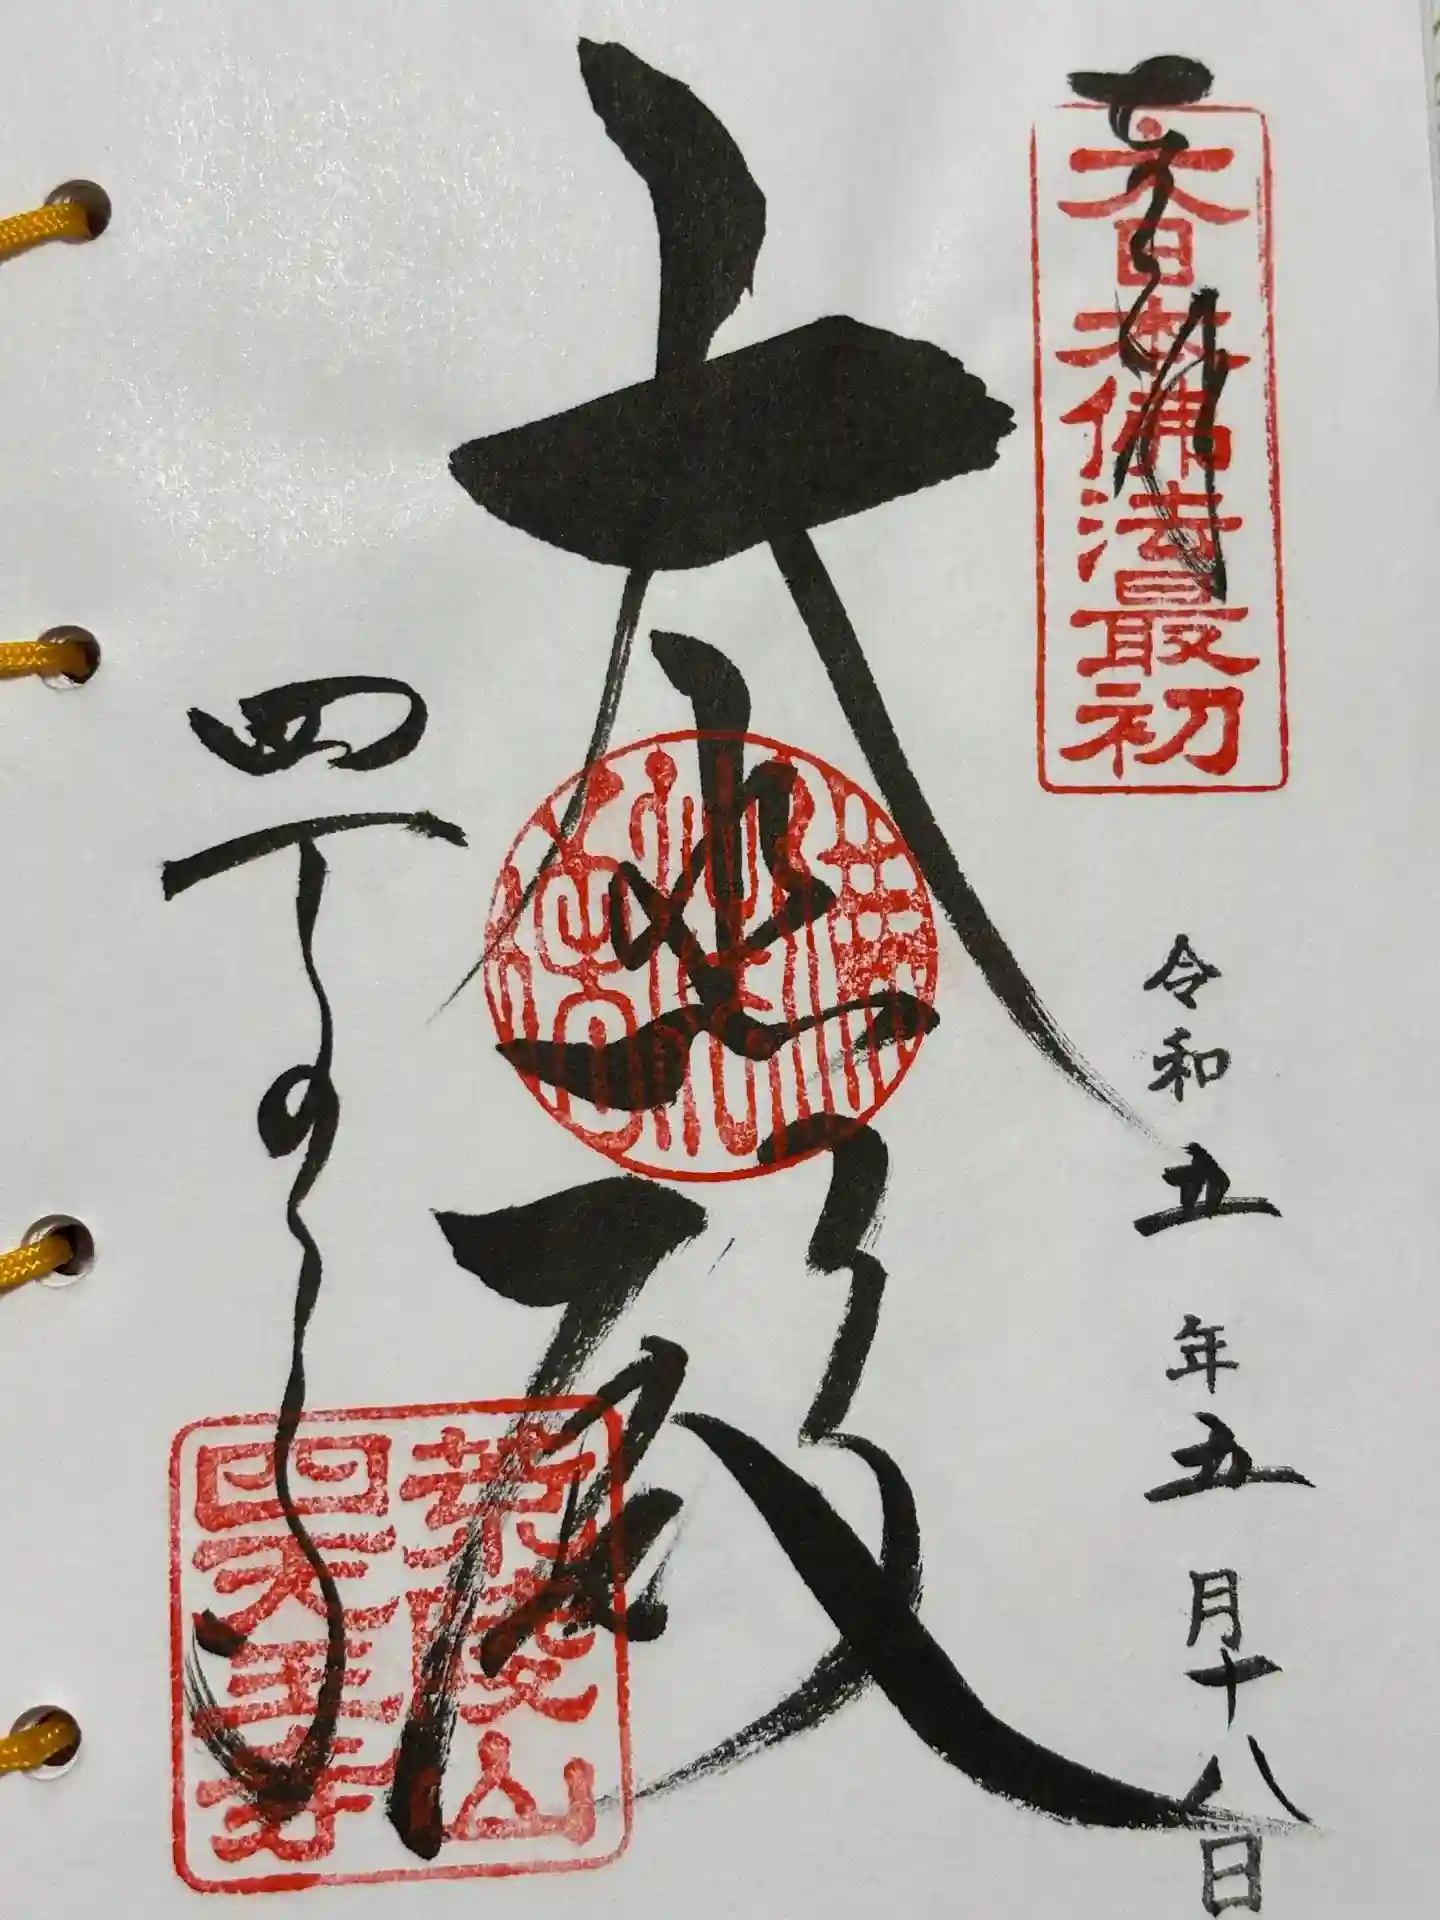 奉拝
大日本佛法最初
令和五年五月十八日
六時殿
四天王寺
荒陵山
四天王寺